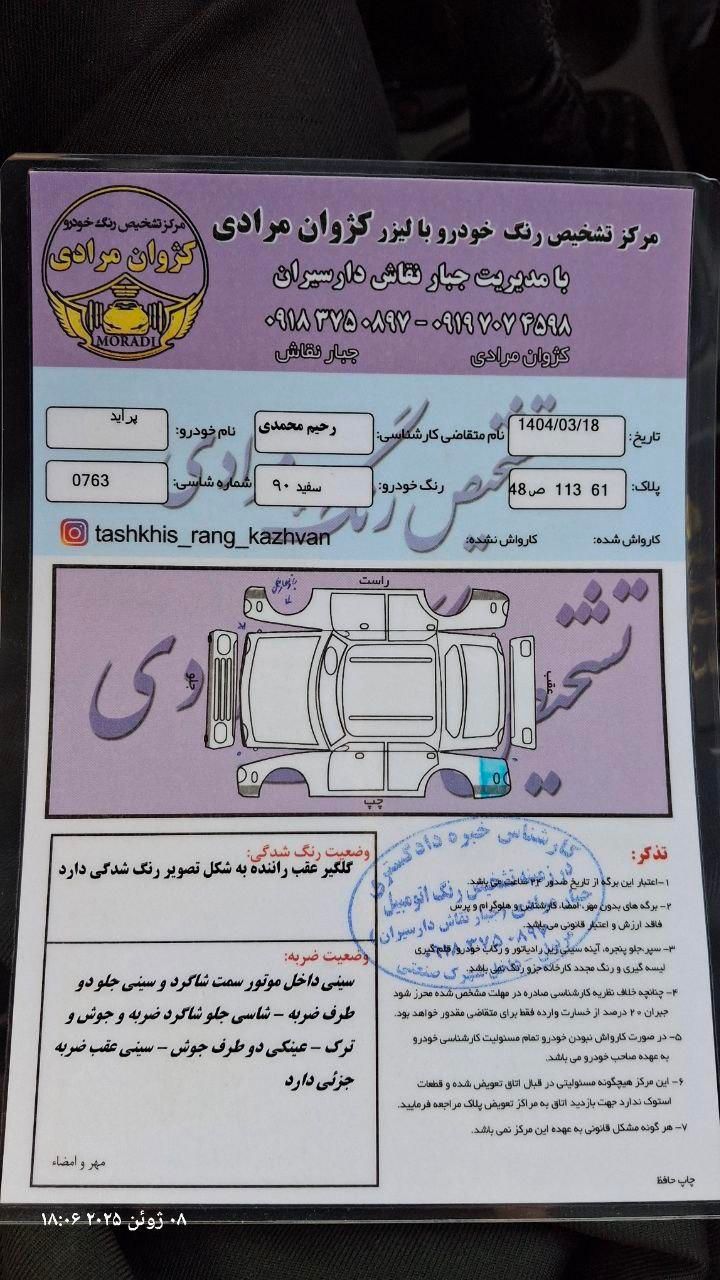 مرکز تشخیص رنگ خودرو
کژوان مرادی
MORADI
مرکز تشخیص رنگ خودرو با لیزر کژوان مرادی
با مدیریت جبار نقاش دارسیران
۰۹۱۹ ۷۰۷ ۴۵۹۸ - ۰۹۱۸ ۳۷۵ ۰۸۹۷
کژوان مرادی جبار نقاش
تاریخ: 1404/03/18 نام متقاضی کارشناسی: رحیم محمدی نام خودرو: پراید
پلاک: 61 113 ص48 رنگ خودرو: سفید ۹۰ شماره شاسی: 0763
کارواش شده: کارواش نشده: tashkhis_rang_kazhvan
تشخیص رنگ مرادی
راست
جلو
عقب
چپ
تشخیص
دی
وضعیت رنگ شدگی:
گلگیر عقب راننده به شکل تصویر رنگ شدگی دارد
وضعیت ضربه:
سینی داخل موتور سمت شاگرد و سینی جلو دو
طرف ضربه - شاسی جلو شاگرد ضربه و جوش و
ترک - عینکی دو طرف جوش - سینی عقب ضربه
جزئی دارد
مهر و امضاء
تذکر:
۱- اعتبار این برگه از تاریخ صدور ۲۴ ساعت می باشد.
۲- برگه های بدون مهر، امضا، کارشناس و هلوگرام و پرس
فاقد ارزش و اعتبار قانونی می باشد.
۳- سپر جلو پنجره، آینه سینی زیر رادیاتور و رکاب خودرو، قلم گیری
لیسه گیری و رنگ مجدد کارخانه جزو رنگ نمی باشد.
۴- چنانچه خلاف نظریه کارشناسی صادره در مهلت مشخص شده محرز شود
جبران ۲۰ درصد از خسارت وارده فقط برای متقاضی مقدور خواهد بود.
۵- در صورت کارواش نبودن خودرو تمام مسئولیت کارشناسی خودرو
به عهده صاحب خودرو می باشد.
۶- این مرکز هیچگونه مسئولیتی در قبال اتاق تعویض شده و قطعات
استوک ندارد جهت بازدید اتاق به مراکز تعویض پلاک مراجعه فرمایید.
۷- هر گونه مشکل قانونی به عهده این مرکز نمی باشد.
کارشناس خبره دادگستری
در زمینه تشخیص رنگ اتومبیل
(جبار نقاش دارسیران)
۰۹۱۸ ۳۷۵ ۰۸۹۷
چاپ حافظ
۰۸ ژوئن ۲۰۲۵ ۱۸:۰۶